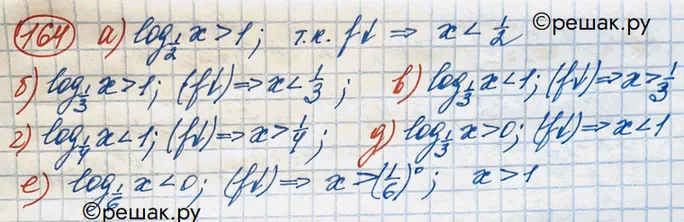 ©решак.ру
164 а) log_{1/2} x > 1; т.к. f↓ ⇒ x < 1/2
б) log_{1/3} x > 1; (f↓) ⇒ x < 1/3; в) log_{1/3} x < 1; (f↓) ⇒ x > 1/3
г) log_{1/4} x < 1; (f↓) ⇒ x > 1/4; д) log_{1/3} x > 0; (f↓) ⇒ x < 1
е) log_{1/6} x < 0; (f↓) ⇒ x > (1/6)^0; x > 1
©решак.ру